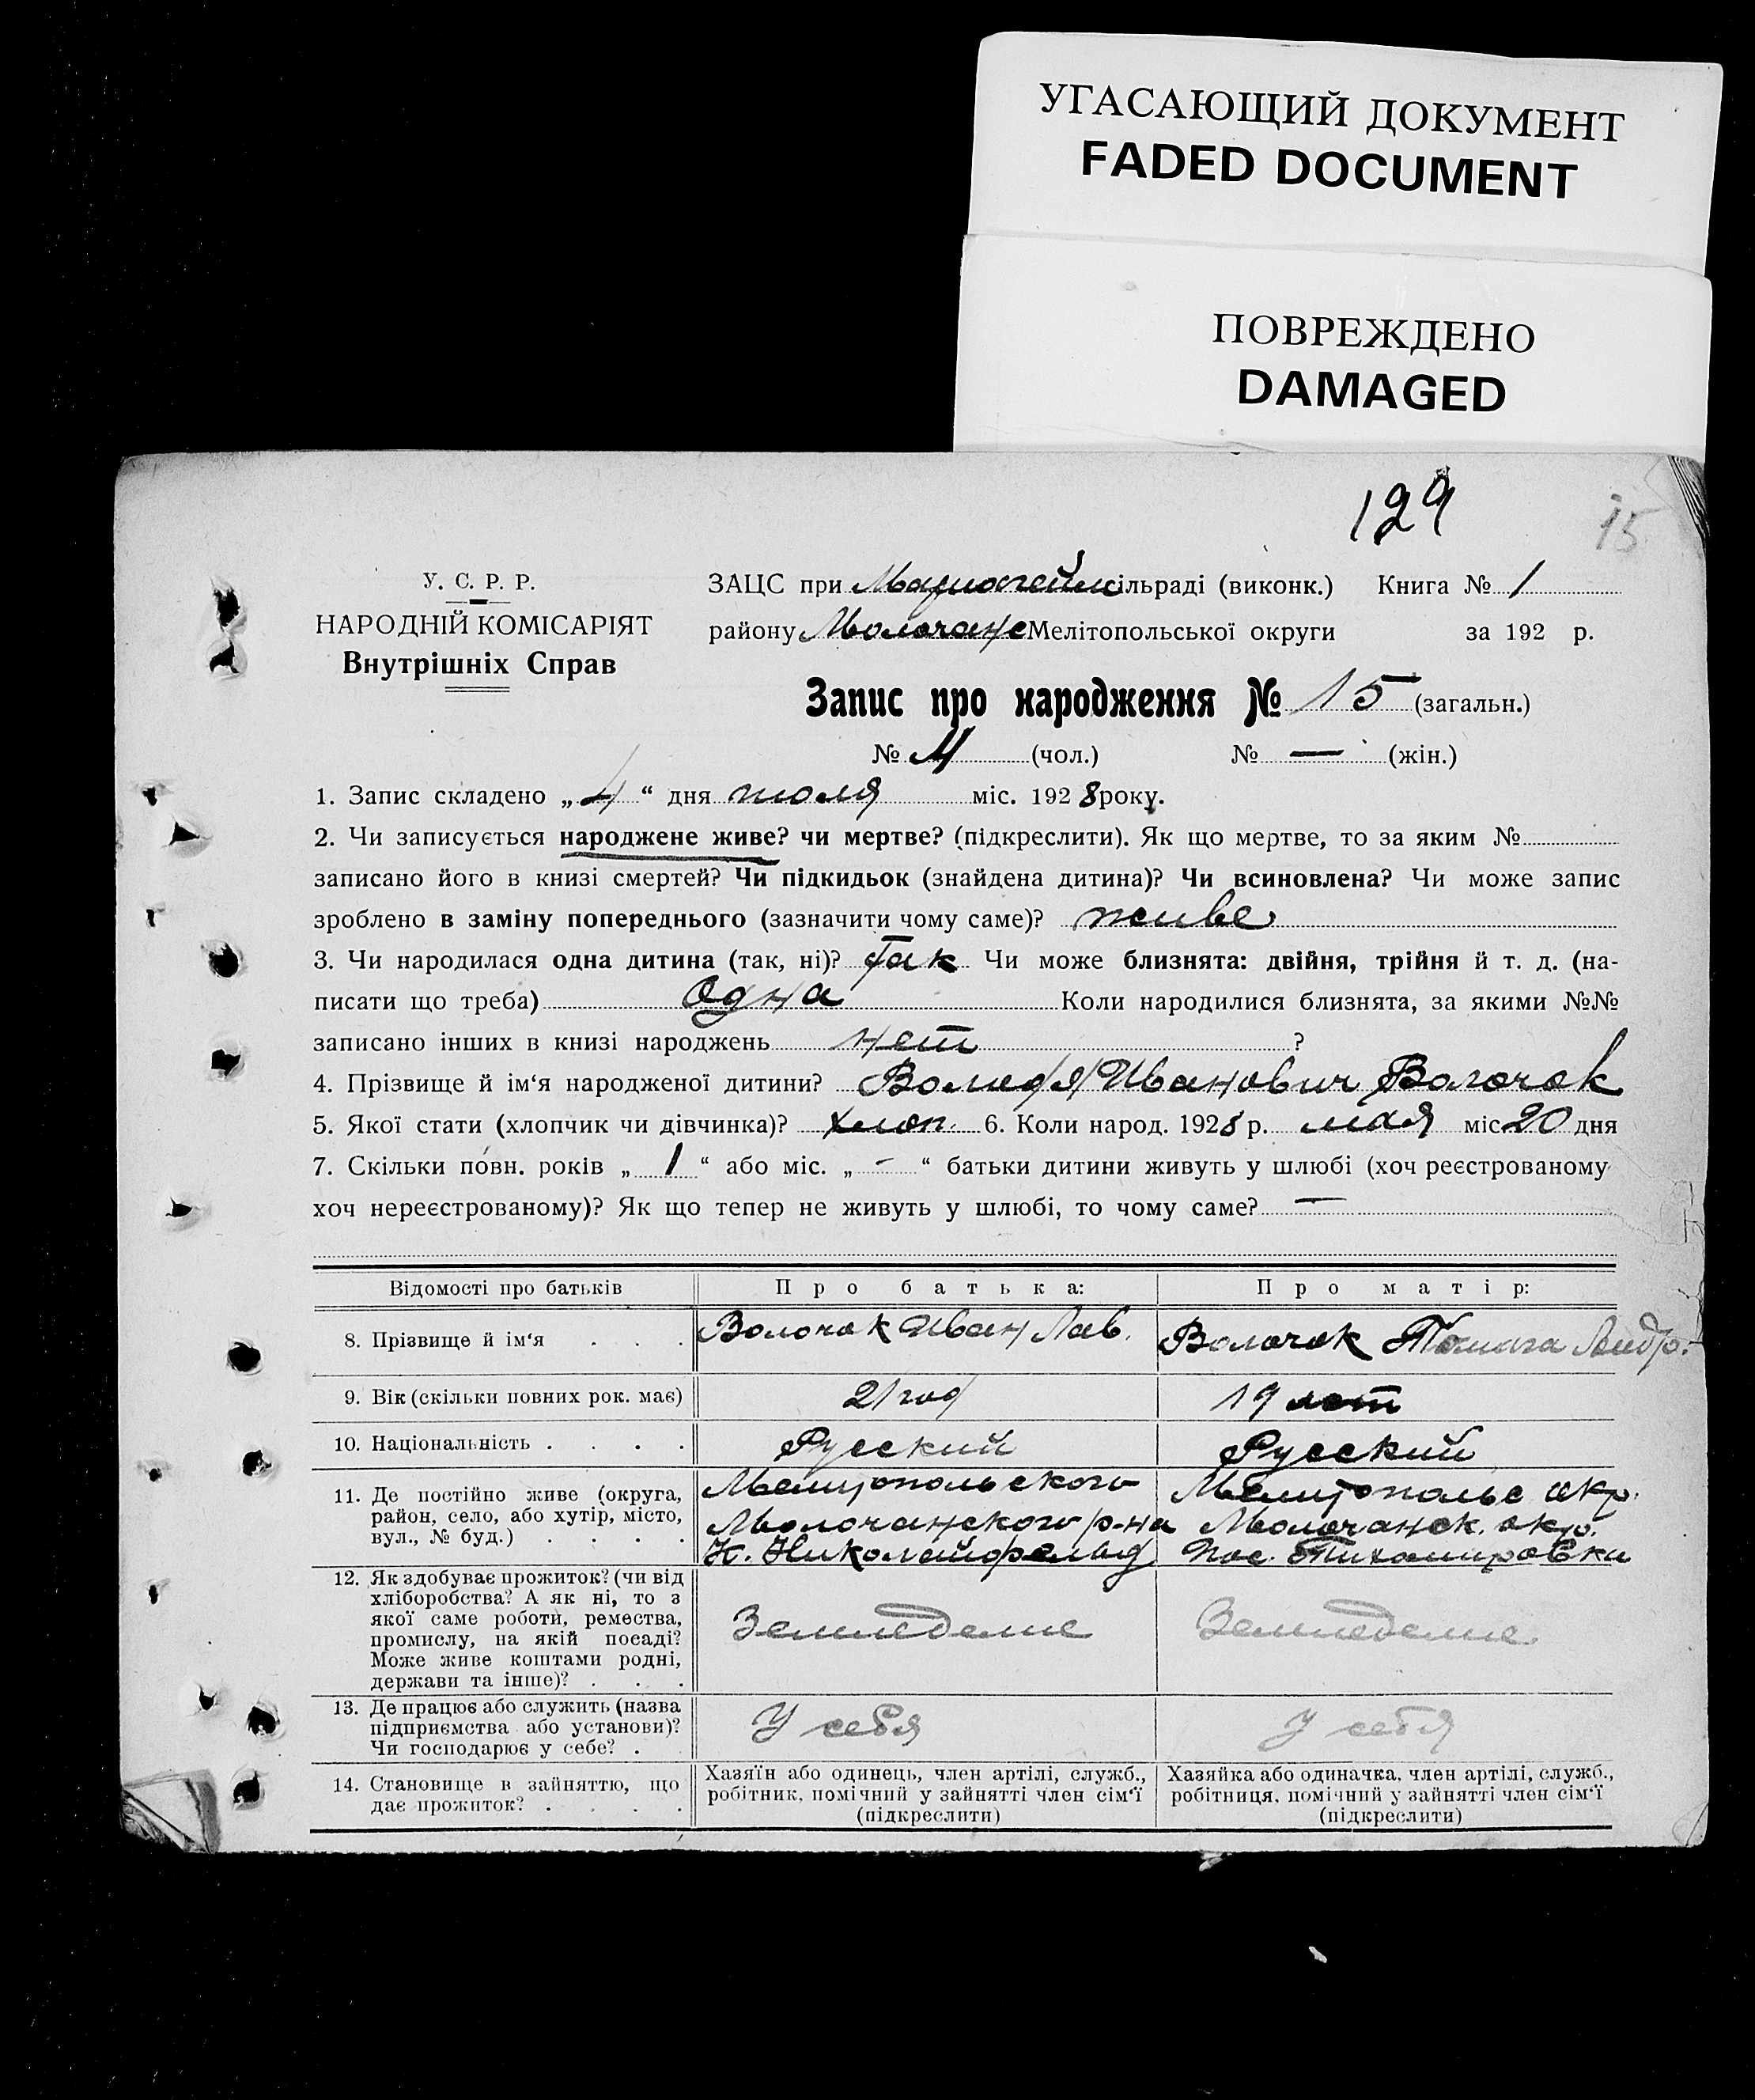 УГАСАЮЩИЙ ДОКУМЕНТ
FADED DOCUMENT
ПОВРЕЖДЕНО
DAMAGED
129
15
У. С. Р. Р.
НАРОДНІЙ КОМІСАРІЯТ
Внутрішніх Справ
ЗАЦС при сільраді (виконк.) Книга № 1
району Молочанс Мелітопольської округи за 192 р.
Запис про народження № 15 (загальн.)
№ (чол.) № — (жін.)
1. Запис складено „ 4 “ дня июля міс. 1928 року.
2. Чи записується народжене живе? чи мертве? (підкреслити). Як що мертве, то за яким №
записано його в книзі смертей? Чи підкидьок (знайдена дитина)? Чи всиновлена? Чи може запис
зроблено в заміну попереднього (зазначити чому саме)? живе
3. Чи народилася одна дитина (так, ні)? Так Чи може близнята: двійня, трійня й т. д. (на-
писати що треба) Одна Коли народилися близнята, за якими №№
записано інших в книзі народжень нет ?
4. Прізвище й ім‘я народженої дитини? Иванович Волочок
5. Якої стати (хлопчик чи дівчинка)? хлоп. 6. Коли народ. 1928 р. мая міс 20 дня
7. Скільки повн. років „ 1 “ або міс. „ - “ батьки дитини живуть у шлюбі (хоч реєстрованому
хоч нереєстрованому)? Як що тепер не живуть у шлюбі, то чому саме? —
Відомості про батьків Про батька: Про матір:
8. Прізвище й ім‘я . . . Волочок Иван Лав. Волочок
9. Вік (скільки повних рок. має) 21 год 19 лет
10. Національність . . . . Русский Русский
11. Де постійно живе (округа, район, село, або хутір, місто, вул., № буд.) . . . .
Мелитопольского
Молочанского р-на
К. Николайфельд
Мелитопольс окр.
Молочанск. окр.
Пос. Тихомировка
12. Як здобуває прожиток? (чи від
хліборобства? А як ні, то з
якої саме роботи, ремества,
промислу, на якій посаді?
Може живе коштами родні,
держави та інше)? . . .
Земледелие Земледелие
13. Де працює або служить (назва
підприємства або установи)?
Чи господарює у себе? .
У себя У себя
14. Становище в зайняттю, що
дає прожиток? . . . .
Хазяїн або одинець, член артілі, служб.,
робітник, помічний у зайнятті член сім‘ї
(підкреслити)
Хазяйка або одиначка, член артілі, служб.,
робітниця, помічний у зайнятті член сім‘ї
(підкреслити)